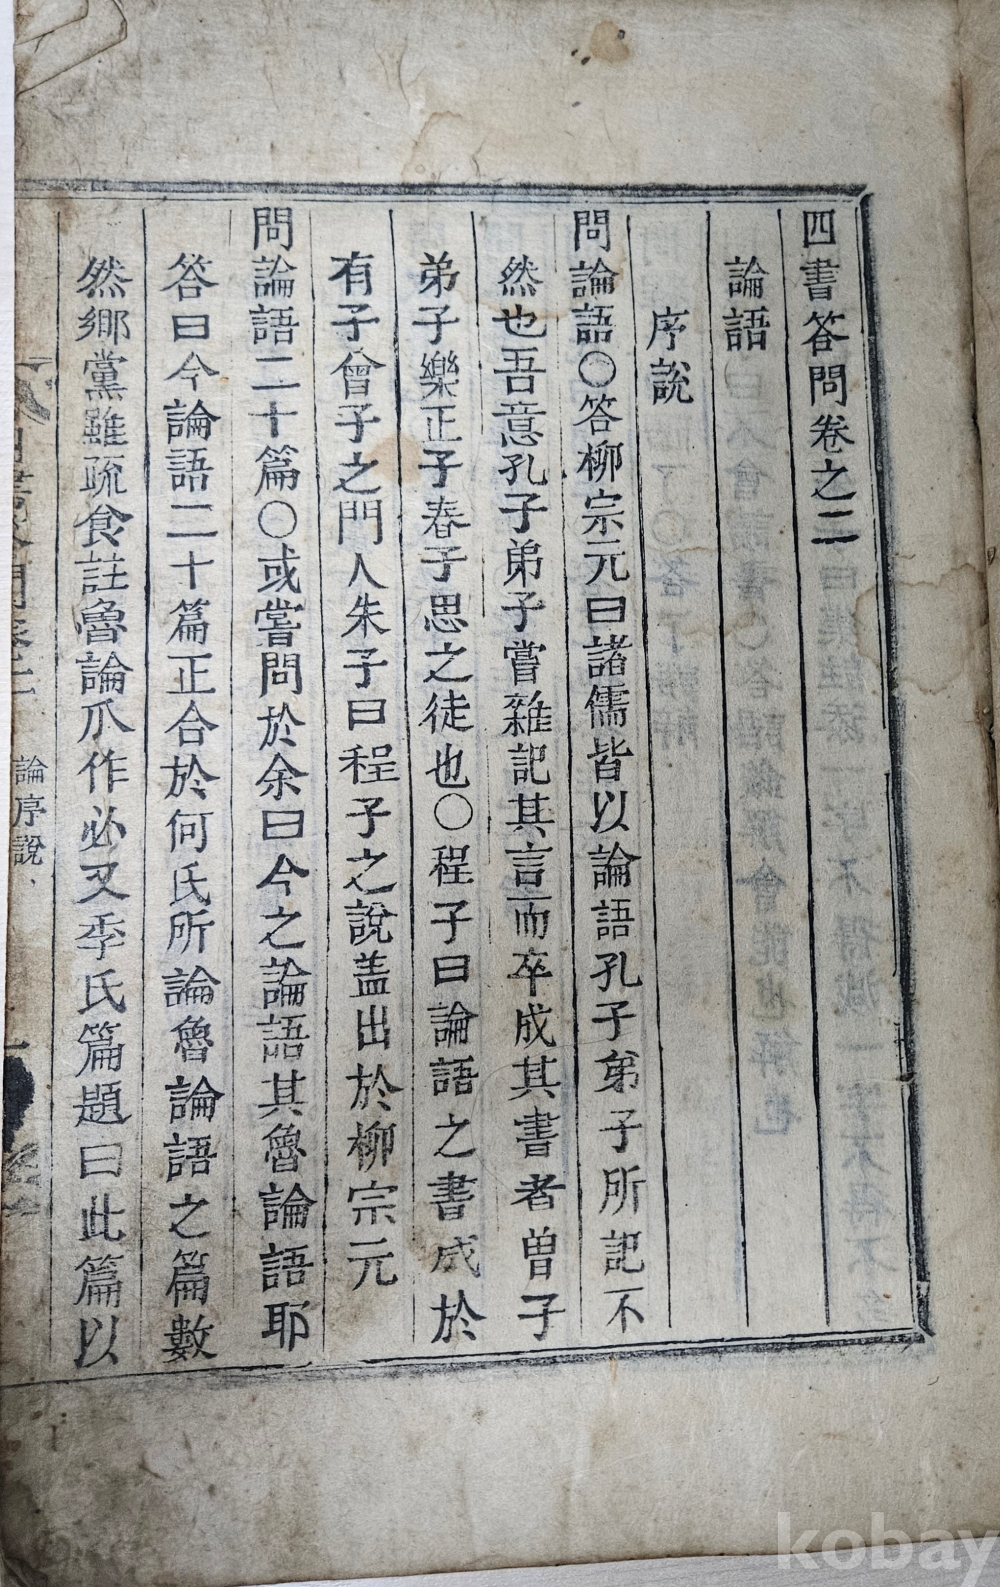 四書答問卷之二
論語
序說
問論語○答柳宗元曰諸儒皆以論語孔子弟子所記不
然也吾意孔子弟子嘗雜記其言而卒成其書者曽子
弟子樂正子春子思之徒也○程子曰論語之書成於
有子曾子之門人朱子曰程子之說盖出於柳宗元
問論語二十篇○或嘗問於余曰今之論語其魯論語耶
答曰今論語二十篇正合於何氏所論魯論語之篇數
然鄉黨雖疏食註魯論瓜作必又季氏篇題曰此篇以
論序說
kobay